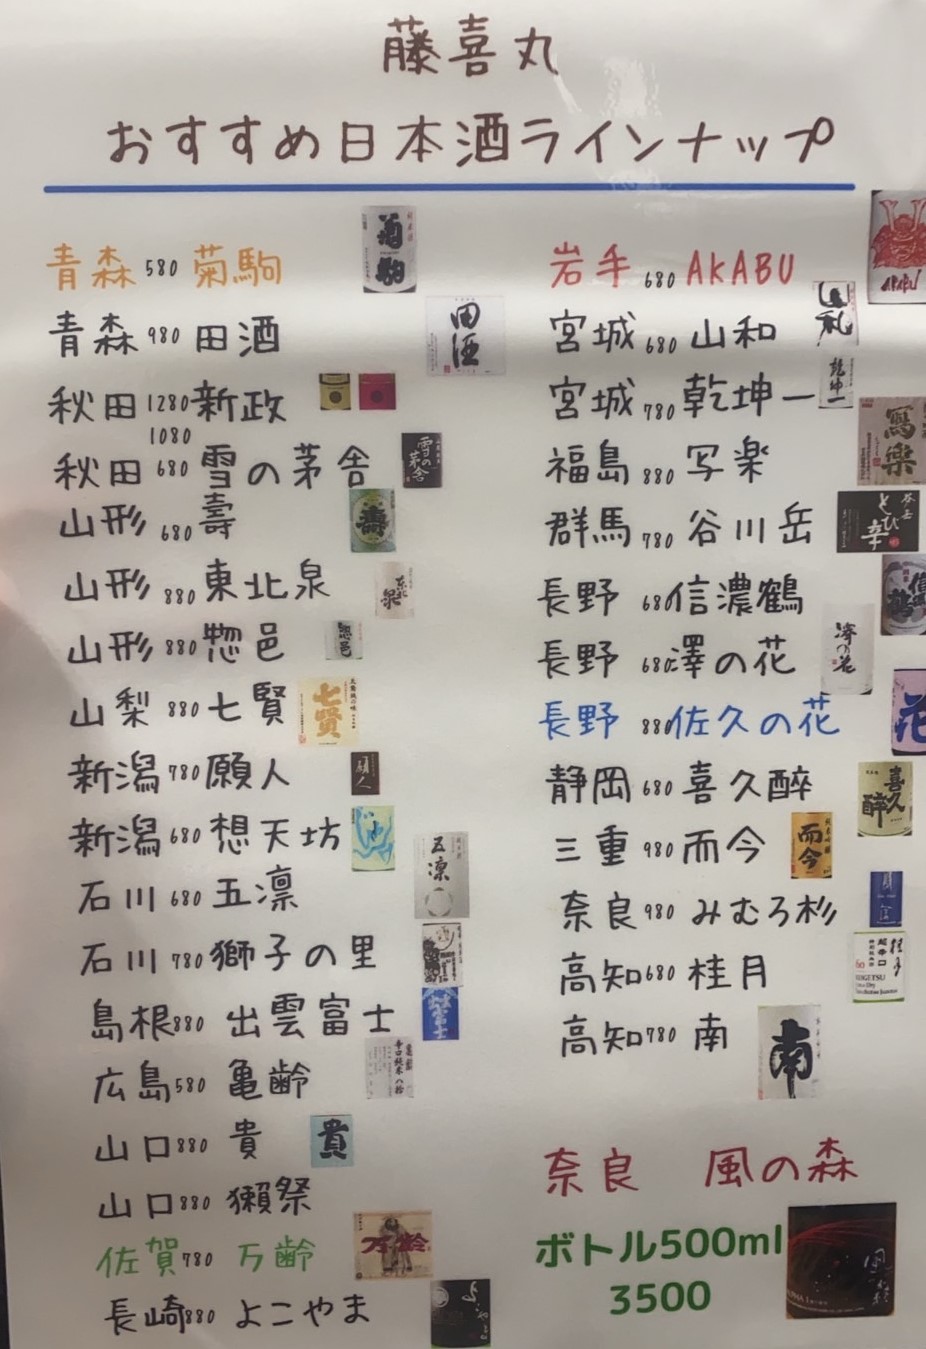 藤喜丸
おすすめ日本酒ラインナップ
青森 580 菊駒
青森 980 田酒
秋田 1280 新政
1080
秋田 680 雪の茅舎
山形 680 壽
山形 880 東北泉
山形 880 惣邑
山梨 880 七賢
新潟 780 願人
新潟 680 想天坊
石川 680 五凛
石川 780 獅子の里
島根 880 出雲富士
広島 580 亀齢
山口 880 貴
山口 880 獺祭
佐賀 780 万齢
長崎 880 よこやま
岩手 680 AKABU
宮城 680 山和
宮城 780 乾坤一
福島 880 写楽
群馬 780 谷川岳
長野 680 信濃鶴
長野 680 澤の花
長野 880 佐久の花
静岡 680 喜久醉
三重 980 而今
奈良 980 みむろ杉
高知 680 桂月
高知 780 南
奈良 風の森
ボトル500ml
3500
菊駒
田酒
雪の茅舎
壽
東北泉
惣邑
七賢
願人
五凛
富士
貴
万齢
よこやま
AKABU
乾坤一
寫樂
谷川岳
澤の花
花
喜久醉
而今
超辛口
桂月
南
風の森